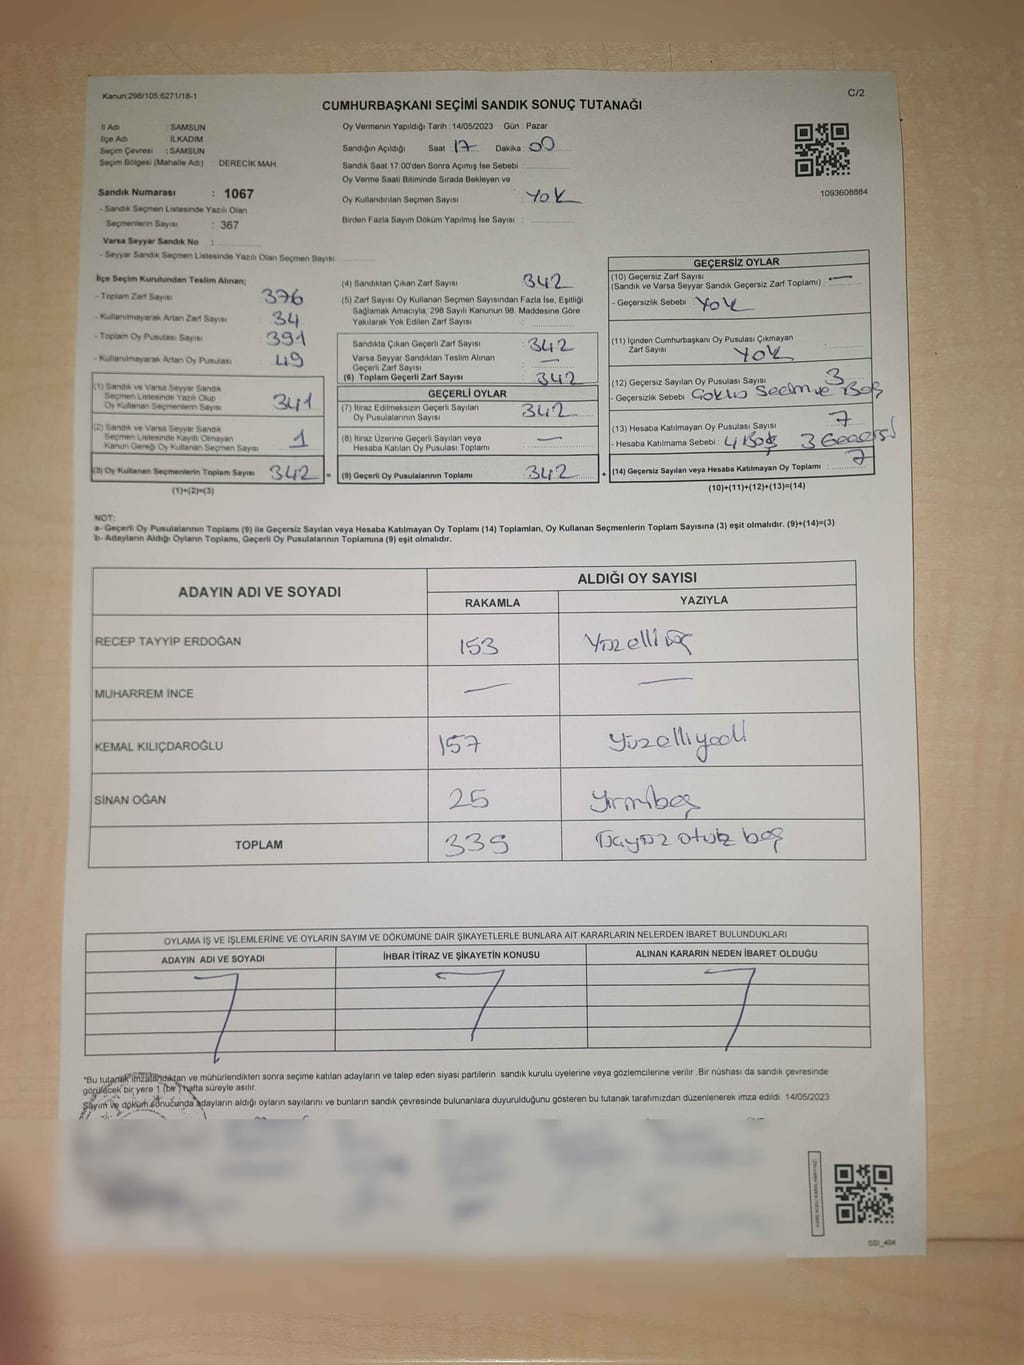 Kanun:298/105;6271/18-1
C/2
CUMHURBAŞKANI SEÇİMİ SANDIK SONUÇ TUTANAĞI
İl Adı : SAMSUN
İlçe Adı : İLKADIM
Seçim Çevresi : SAMSUN
Seçim Bölgesi (Mahalle Adı) : DERECİK MAH.
Sandık Numarası : 1067
- Sandık Seçmen Listesinde Yazılı Olan
Seçmenlerin Sayısı : 367
Varsa Seyyar Sandık No :
- Seyyar Sandık Seçmen Listesinde Yazılı Olan Seçmen Sayısı:
Oy Vermenin Yapıldığı Tarih : 14/05/2023 Gün : Pazar
Sandığın Açıldığı Saat : 17 Dakika : 00
Sandık Saat 17:00'den Sonra Açımış İse Sebebi :
Oy Verme Saati Bitiminde Sırada Bekleyen ve
Oy Kullandırılan Seçmen Sayısı : YOK
Birden Fazla Sayım Döküm Yapılmış İse Sayısı :
1093608884
İlçe Seçim Kurulundan Teslim Alınan;
- Toplam Zarf Sayısı 376
- Kullanılmayarak Artan Zarf Sayısı 34
- Toplam Oy Pusulası Sayısı 391
- Kullanılmayarak Artan Oy Pusulası 49
(1) Sandık ve Varsa Seyyar Sandık
Seçmen Listesinde Yazılı Olup
Oy Kullanan Seçmenlerin Sayısı 341
(2) Sandık ve Varsa Seyyar Sandık
Seçmen Listesinde Kayıtlı Olmayan
Kanun Gereği Oy Kullanan Seçmen Sayısı 1
(3) Oy Kullanan Seçmenlerin Toplam Sayısı 342 =
(1)+(2)=(3)
(4) Sandıktan Çıkan Zarf Sayısı : 342
(5) Zarf Sayısı Oy Kullanan Seçmen Sayısından Fazla İse, Eşitliği
Sağlamak Amacıyla, 298 Sayılı Kanunun 98. Maddesine Göre
Yakılarak Yok Edilen Zarf Sayısı :
Sandıkta Çıkan Geçerli Zarf Sayısı : 342
Varsa Seyyar Sandıktan Teslim Alınan
Geçerli Zarf Sayısı : —
(6) Toplam Geçerli Zarf Sayısı : 342
GEÇERLİ OYLAR
(7) İtiraz Edilmeksizin Geçerli Sayılan
Oy Pusulalarının Sayısı : 342
(8) İtiraz Üzerine Geçerli Sayılan veya
Hesaba Katılan Oy Pusulası Toplamı : —
(9) Geçerli Oy Pusulalarının Toplamı : 342 +
GEÇERSİZ OYLAR
(10) Geçersiz Zarf Sayısı
(Sandık ve Varsa Seyyar Sandık Geçersiz Zarf Toplamı) : —
- Geçersizlik Sebebi : YOK
(11) İçinden Cumhurbaşkanı Oy Pusulası Çıkmayan
Zarf Sayısı : YOK
(12) Geçersiz Sayılan Oy Pusulası Sayısı : 3
- Geçersizlik Sebebi : Çoklu Seçim ve Boş
(13) Hesaba Katılmayan Oy Pusulası Sayısı : 7
- Hesaba Katılmama Sebebi : 4 Boş 3 Geçersiz
(14) Geçersiz Sayılan veya Hesaba Katılmayan Oy Toplamı : 7
(10)+(11)+(12)+(13)=(14)
NOT:
a- Geçerli Oy Pusulalarının Toplamı (9) ile Geçersiz Sayılan veya Hesaba Katılmayan Oy Toplamı (14) Toplamları, Oy Kullanan Seçmenlerin Toplam Sayısına (3) eşit olmalıdır. (9)+(14)=(3)
b- Adayların Aldığı Oyların Toplamı, Geçerli Oy Pusulalarının Toplamına (9) eşit olmalıdır.
ADAYIN ADI VE SOYADI ALDIĞI OY SAYISI
RAKAMLA YAZIYLA
RECEP TAYYİP ERDOĞAN 153 Yüzelliüç
MUHARREM İNCE — —
KEMAL KILIÇDAROĞLU 157 Yüzelliyedi
SİNAN OĞAN 25 Yirmibeş
TOPLAM 335 Üçyüz otuz beş
OYLAMA İŞ VE İŞLEMLERİNE VE OYLARIN SAYIM VE DÖKÜMÜNE DAİR ŞİKAYETLERLE BUNLARA AİT KARARLARIN NELERDEN İBARET BULUNDUKLARI
ADAYIN ADI VE SOYADI İHBAR İTİRAZ VE ŞİKAYETİN KONUSU ALINAN KARARIN NEDEN İBARET OLDUĞU
*Bu tutanak imzalandıktan ve mühürlendikten sonra seçime katılan adayların ve talep eden siyasi partilerin sandık kurulu üyelerine veya gözlemcilerine verilir .Bir nüshası da sandık çevresinde
görülecek bir yere 1 (bir ) hafta süreyle asılır.
Sayım ve döküm sonucunda adayların aldığı oyların sayılarını ve bunların sandık çevresinde bulunanlara duyurulduğunu gösteren bu tutanak tarafımızdan düzenlenerek imza edildi. 14/05/2023
SSI_404